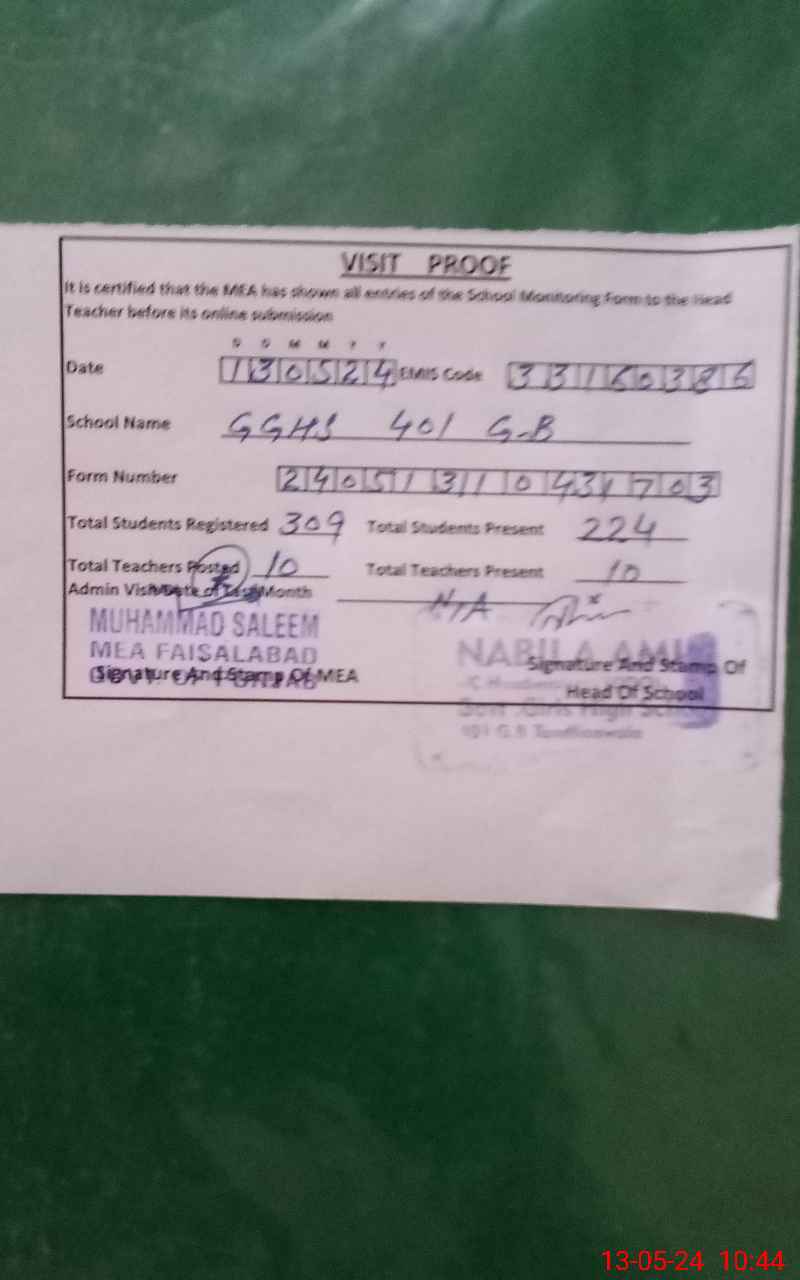 VISIT PROOF
It is certified that the MEA has shown all entries of the School Monitoring Form to the Head
Teacher before its online submission
D D M M Y Y
Date 130524 EMIS Code 33160386
School Name GGHS 401 G-B
Form Number 240513110431703
Total Students Registered 309 Total Students Present 224
Total Teachers Posted 10 Total Teachers Present 10
Admin Visit Date of Last Month N/A
MUHAMMAD SALEEM
MEA FAISALABAD
GOVT OF PUNJAB
Signature And Stamp Of MEA
NABILA AMIN
Signature And Stamp Of
Head Of School
Govt .Girls High School
401 G.B
13-05-24 10:44